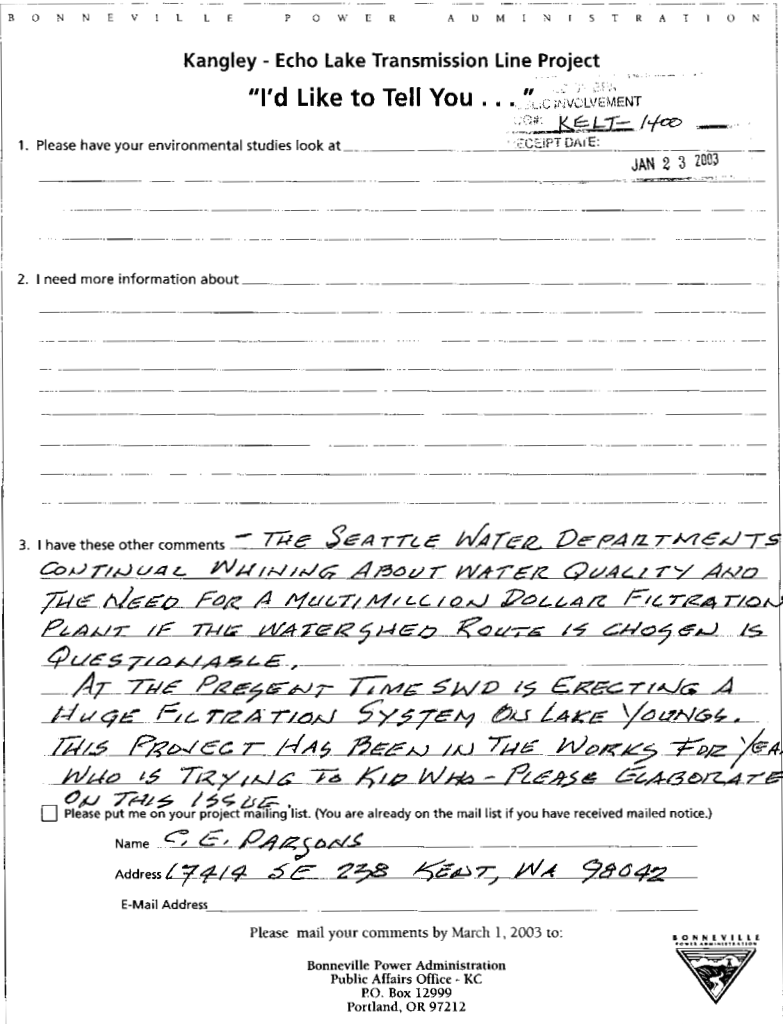 BONNEVILLE POWER ADMINISTRATION
Kangley - Echo Lake Transmission Line Project
"I'd Like to Tell You . . ."
LIC INVOLVEMENT
KELT- 1400
ECEIPT DATE:
JAN 2 3 2003
1. Please have your environmental studies look at
2. I need more information about
3. I have these other comments - THE SEATTLE WATER DEPARTMENTS
CONTINUAL WHINING ABOUT WATER QUALITY AND
THE NEED FOR A MULTIMILLION DOLLAR FILTRATION
PLANT IF THE WATERSHED ROUTE IS CHOSEN IS
QUESTIONABLE.
AT THE PRESENT TIME SWD IS ERECTING A
HUGE FILTRATION SYSTEM ON LAKE YOUNGS.
THIS PROJECT HAS BEEN IN THE WORKS FOR YEA
WHO IS TRYING TO KID WHO - PLEASE ELABORATE
ON THIS ISSUE.
Please put me on your project mailing list. (You are already on the mail list if you have received mailed notice.)
Name C. E. PARSONS
Address 17414 SE 238 KENT, WA 98042
E-Mail Address
Please mail your comments by March 1, 2003 to:
Bonneville Power Administration
Public Affairs Office - KC
P.O. Box 12999
Portland, OR 97212
BONNEVILLE
POWER ADMINISTRATION